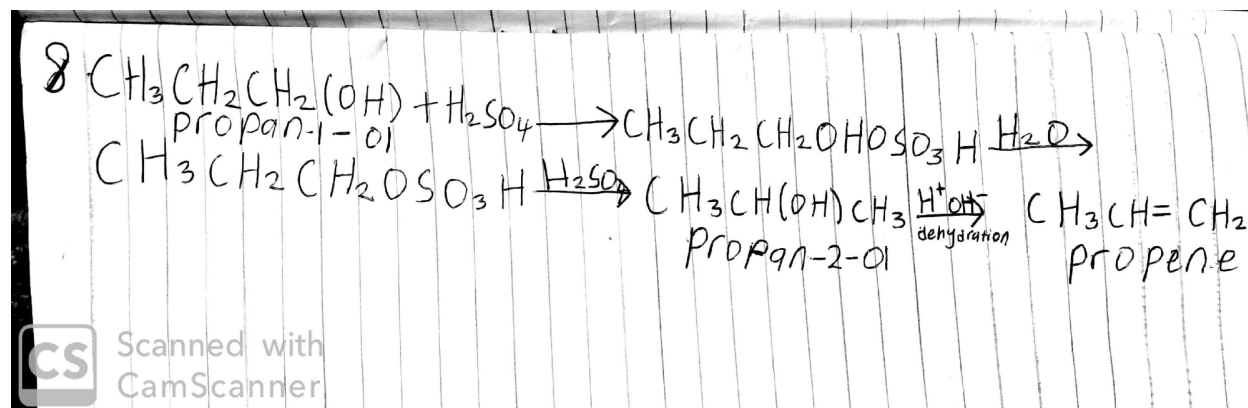 8 CH₃CH₂CH₂(OH) + H₂SO₄ → CH₃CH₂CH₂OHOSO₃H H₂O →
propan-1-ol
CH₃CH₂CH₂OSO₃H H₂SO₄ → CH₃CH(OH)CH₃ H⁺OH⁻ → CH₃CH=CH₂
dehydration
propan-2-ol propene
CS Scanned with
CamScanner